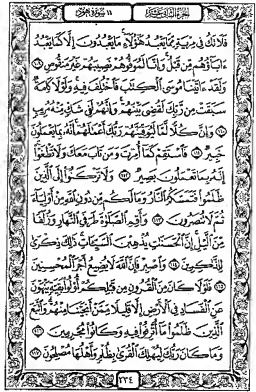 الجزء الثاني عشر ١١ سورة هود
فَلَا تَكُ فِي مِرْيَةٍ مِّمَّا يَعْبُدُ هَٰؤُلَاءِ مَا يَعْبُدُونَ إِلَّا كَمَا يَعْبُدُ
ءَابَاؤُهُم مِّن قَبْلُ وَإِنَّا لَمُوَفُّوهُمْ نَصِيبَهُمْ غَيْرَ مَنقُوصٍ ١٠٩
وَلَقَدْ ءَاتَيْنَا مُوسَى ٱلْكِتَٰبَ فَٱخْتُلِفَ فِيهِ وَلَوْلَا كَلِمَةٌ
سَبَقَتْ مِن رَّبِّكَ لَقُضِيَ بَيْنَهُمْ وَإِنَّهُمْ لَفِي شَكٍّ مِّنْهُ مُرِيبٍ
١١٠ وَإِنَّ كُلًّا لَّمَّا لَيُوَفِّيَنَّهُمْ رَبُّكَ أَعْمَٰلَهُمْ إِنَّهُ بِمَا يَعْمَلُونَ
خَبِيرٌ ١١١ فَٱسْتَقِمْ كَمَا أُمِرْتَ وَمَن تَابَ مَعَكَ وَلَا تَطْغَوْا
إِنَّهُ بِمَا تَعْمَلُونَ بَصِيرٌ ١١٢ وَلَا تَرْكَنُوا إِلَى ٱلَّذِينَ
ظَلَمُوا فَتَمَسَّكُمُ ٱلنَّارُ وَمَا لَكُم مِّن دُونِ ٱللَّهِ مِنْ أَوْلِيَاءَ
ثُمَّ لَا تُنصَرُونَ ١١٣ وَأَقِمِ ٱلصَّلَوٰةَ طَرَفَيِ ٱلنَّهَارِ وَزُلَفًا
مِّنَ ٱلَّيْلِ إِنَّ ٱلْحَسَنَٰتِ يُذْهِبْنَ ٱلسَّيِّـَٔاتِ ذَٰلِكَ ذِكْرَىٰ
لِلذَّٰكِرِينَ ١١٤ وَٱصْبِرْ فَإِنَّ ٱللَّهَ لَا يُضِيعُ أَجْرَ ٱلْمُحْسِنِينَ
١١٥ فَلَوْلَا كَانَ مِنَ ٱلْقُرُونِ مِن قَبْلِكُمْ أُولُوا بَقِيَّةٍ يَنْهَوْنَ
عَنِ ٱلْفَسَادِ فِي ٱلْأَرْضِ إِلَّا قَلِيلًا مِّمَّنْ أَنجَيْنَا مِنْهُمْ وَٱتَّبَعَ
ٱلَّذِينَ ظَلَمُوا مَا أُتْرِفُوا فِيهِ وَكَانُوا مُجْرِمِينَ ١١٦
وَمَا كَانَ رَبُّكَ لِيُهْلِكَ ٱلْقُرَىٰ بِظُلْمٍ وَأَهْلُهَا مُصْلِحُونَ ١١٧
٢٣٤